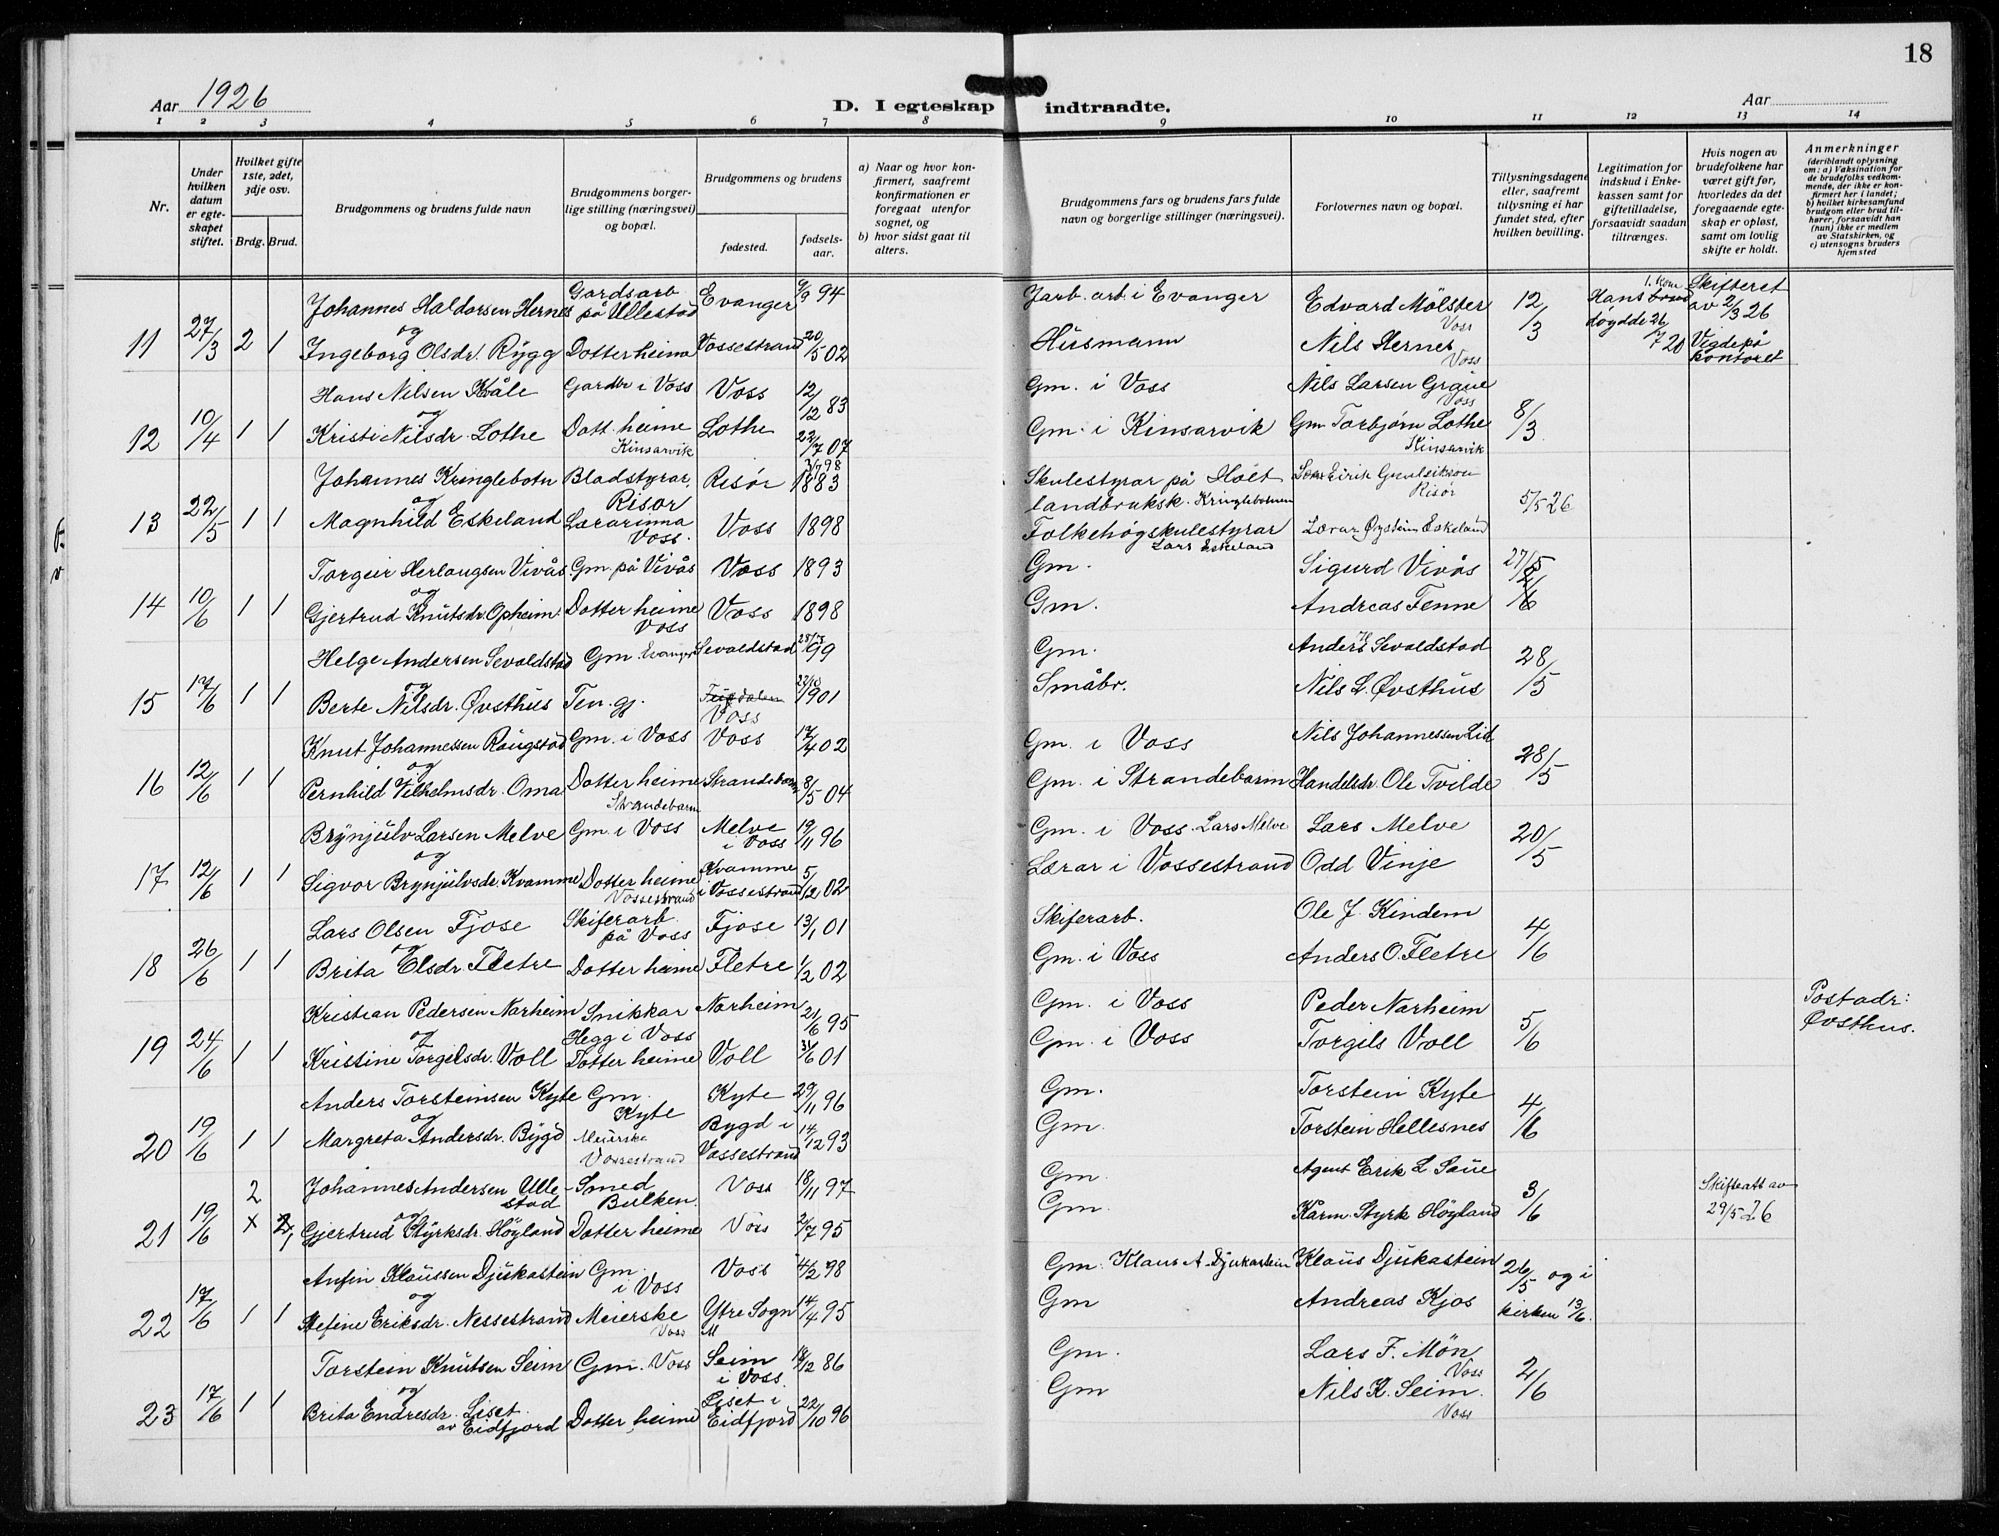 18
Aar 1926
D. I egteskap indtraadte.
Aar
1 2 3 4 5 6 7 8 9 10 11 12 13 14
Nr.
Under hvilken datum er egteskapet stiftet.
Hvilket gifte 1ste, 2det, 3dje osv.
Brdg. Brud.
Brudgommens og brudens fulde navn
Brudgommens borgerlige stilling (næringsvei) og bopæl.
Brudgommens og brudens
fødested.
fødselsaar.
a) Naar og hvor konfirmert, saafremt konfirmationen er foregaat utenfor sognet, og
b) hvor sidst gaat til alters.
Brudgommens fars og brudens fars fulde navn og borgerlige stillinger (næringsvei).
Forlovernes navn og bopæl.
Tillysningsdagene eller, saafremt tillysning ei har fundet sted, efter hvilken bevilling.
Legitimation for indskud i Enkekassen samt for giftetilladelse, forsaavidt saadan tiltrænges.
Hvis nogen av brudefolkene har været gift før, hvorledes da det foregaaende egteskap er opløst, samt om lovlig skifte er holdt.
Anmerkninger (deriblandt oplysning om: a) Vaksination for de brudefolks vedkommende, der ikke er konfirmert her i landet; b) hvilket kirkesamfund brudgom eller brud tilhører, forsaavidt han (hun) ikke er medlem av Statskirken, og c) utensogns bruders hjemsted
Johannes Haldorsen Hernes Gardsarb på Ullestad Evanger 9/9 94 Jarb. arb. i Evanger Edvard Mölster Voss 12/3 Hans 1. kone døydde 26/7 20 Skifteret av 2/3 26
11 27/3 2 1 og Ingeborg Olsdr. Rygg Dotter heime Vossestrand 20/5 02 Husmann Nils Hernes Voss Vigde på kontoret
Hans Nilsen Kvåle Gardbr i Voss Voss 12/12 83 Gm. i Voss Nils Larsen Graue Voss
12 10/4 1 1 og Kristi Nilsdr. Lothe Dott. heime Kinsarvik Lothe 22/7 07 Gm. i Kinsarvik Gm Torbjørn Lothe Kinsarvik 8/3
Johannes Kringlebotn Bladstyrar, Risør Risør 1883 Skulestyrar på landbruksk. Kringlebotnen Risør
13 22/5 1 1 og Magnhild Eskeland Lærarinna Voss. Voss 1898 Folkehøgskulestyrar Lars Eskeland Lærar Øystein Eskeland 5/5 26
Torgeir Herlaugsen Vivås Gm. på Vivås Voss 1893 Gm. Sigurd Vivås 27/5
14 10/6 1 1 og Gjertrud Knutsdr. Opheim Dotter heime Voss Voss 1898 Gm. Andreas Tenne
Helge Andersen Sevaldstad Gm. Evanger Sevaldstad 99 Gm. Anders Sevaldstad 28/5
15 17/6 1 1 og Berte Nilsdr. Øvsthus Ten. gj. Voss 1901 Småbr. Nils L. Øvsthus
Knut Johannessen Raugstad Gm. i Voss Voss 17/4 02 Gm. i Voss Nils Johannessen Lid 28/5
16 12/6 1 1 og Pernhild Vilhelmsdr. Oma Dotter heime Strandebarm Strandebarm 8/5 04 Gm. i Strandebarm Handelsdr. Ole Tvilde
Brynjulv Larsen Melve Gm. i Voss Melve i Voss 19/11 96 Gm. i Voss. Lars Melve Lars Melve 20/5
17 12/6 1 1 og Sigvor Brynjulvsdr. Kvamme Dotter heime Vossestrand Kvamme i Vossestrand 5/12 02 Lærar i Vossestrand Odd Vinje
Lars Olsen Fjose Skiferarb. på Voss Fjose 13/1 01 Skiferarb. Ole J. Kindem 4/6
18 26/6 1 1 og Brita Elsdr. Fletre Dotter heime Fletre 1/2 02 Gm. i Voss Anders O. Fletre
Kristian Pedersen Narheim Snikkar Hegg i Voss Narheim 21/6 95 Gm. i Voss Peder Narheim 5/6 Postadr: Øvsthus.
19 24/6 1 1 og Kristine Torgilsdr. Voll Dotter heime Voll 01 Gm. i Voss Torgils Voll
Anders Torsteinsen Kyte Gm. Kyte Kyte 29/11 96 Gm. Torstein Kyte 4/6
20 19/6 1 1 og Margreta Andersdr. Bygd Meierske Vossestrand Bygd i Vossestrand 14/12 93 Gm. Torstein Hellesnes
Johannes Andersen Ullestad Smed Bulken. Voss 18/11 97 Gm. Agent Erik L. Saue 3/6 Skifteatt av 29/5 26
21 19/6 2 x 1 og Gjertrud Styrksdr. Höyland Dotter heime Voss 2/7 95 Gm. Kårm. Styrk Höyland
Anfin Klaussen Djukastein Gm. i Voss Voss 4/2 98 Gm. Klaus A. Djukastein Klaus Djukastein 26/5 og i kirken 13/6
22 17/6 1 1 og Stefine Eriksdr. Nessestrand Meierske Voss Ytre Sogn M 14/4 95 Gm Andreas Kjos
Torstein Knutsen Seim Gm. Voss Seim i Voss. 18/12 86 Gm. Lars F. Mön Voss 2/6
23 17/6 1 1 og Brita Endresdr. Liset av Eidfjord Dotter heime Liset i Eidfjord 22/10 96 Gm Nils K. Seim. Voss